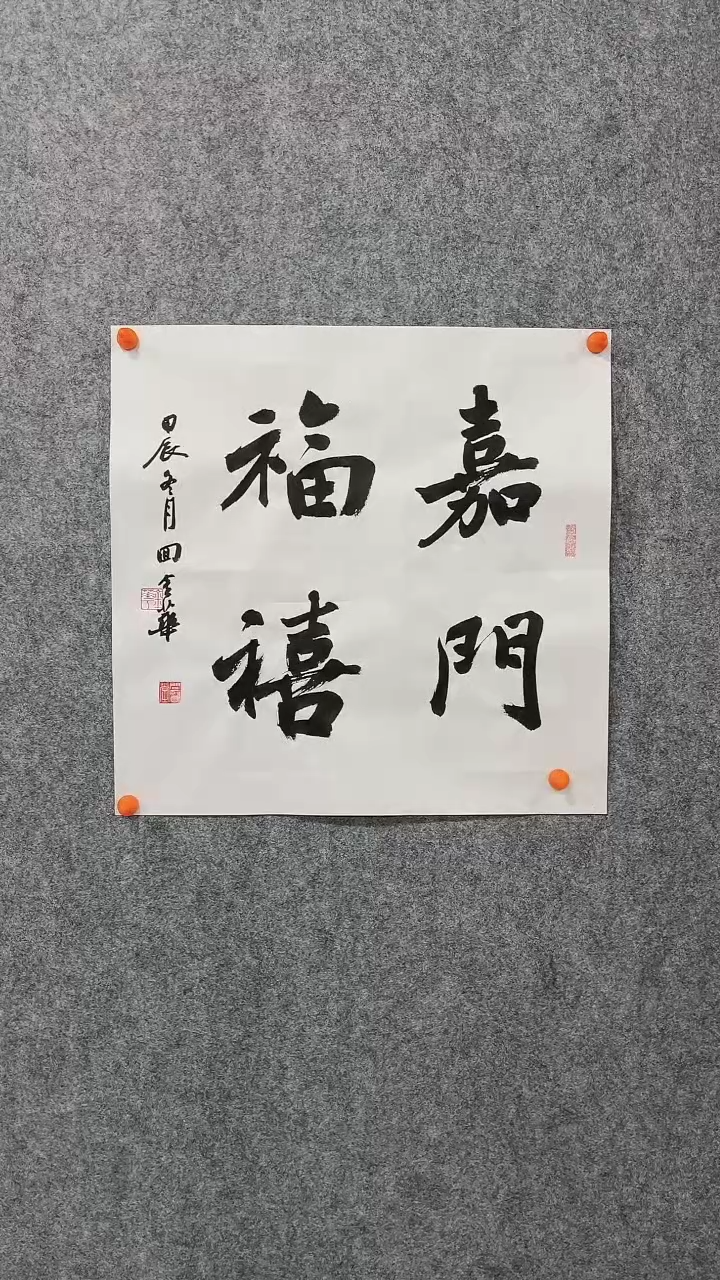 嘉門
福禧
甲辰冬月田金華